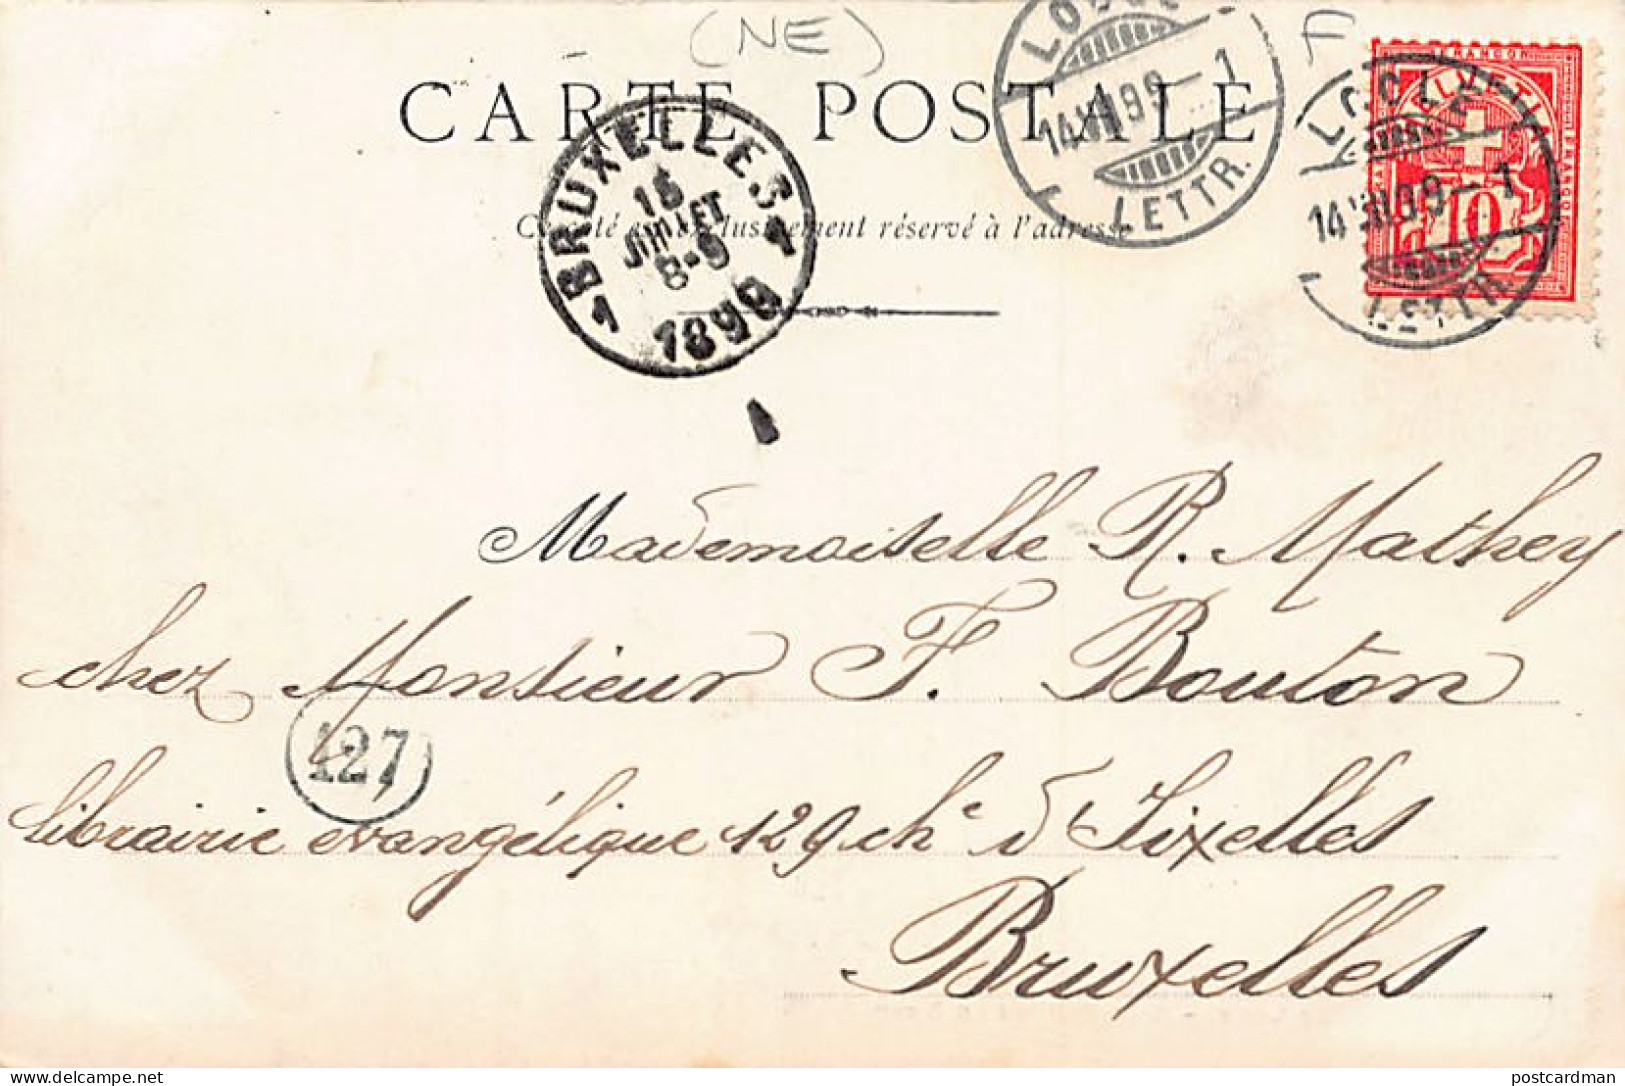 (NE)
F
CARTE POSTALE
Côté exclusivement réservé à l'adresse
BRUXELLES
JUILLET
8-9
1899
1
1
LOCLE
14 VII 99 - 1
LETTR.
FRANCO
HELVETIA
10
LOCLE
14 VII 99 - 1
LETTR.
Mademoiselle R. Mathey
chez Monsieur F. Bouton
127
librairie evangélique 129 chᵉ d'Ixelles
Bruxelles
www.delcampe.net
postcardman